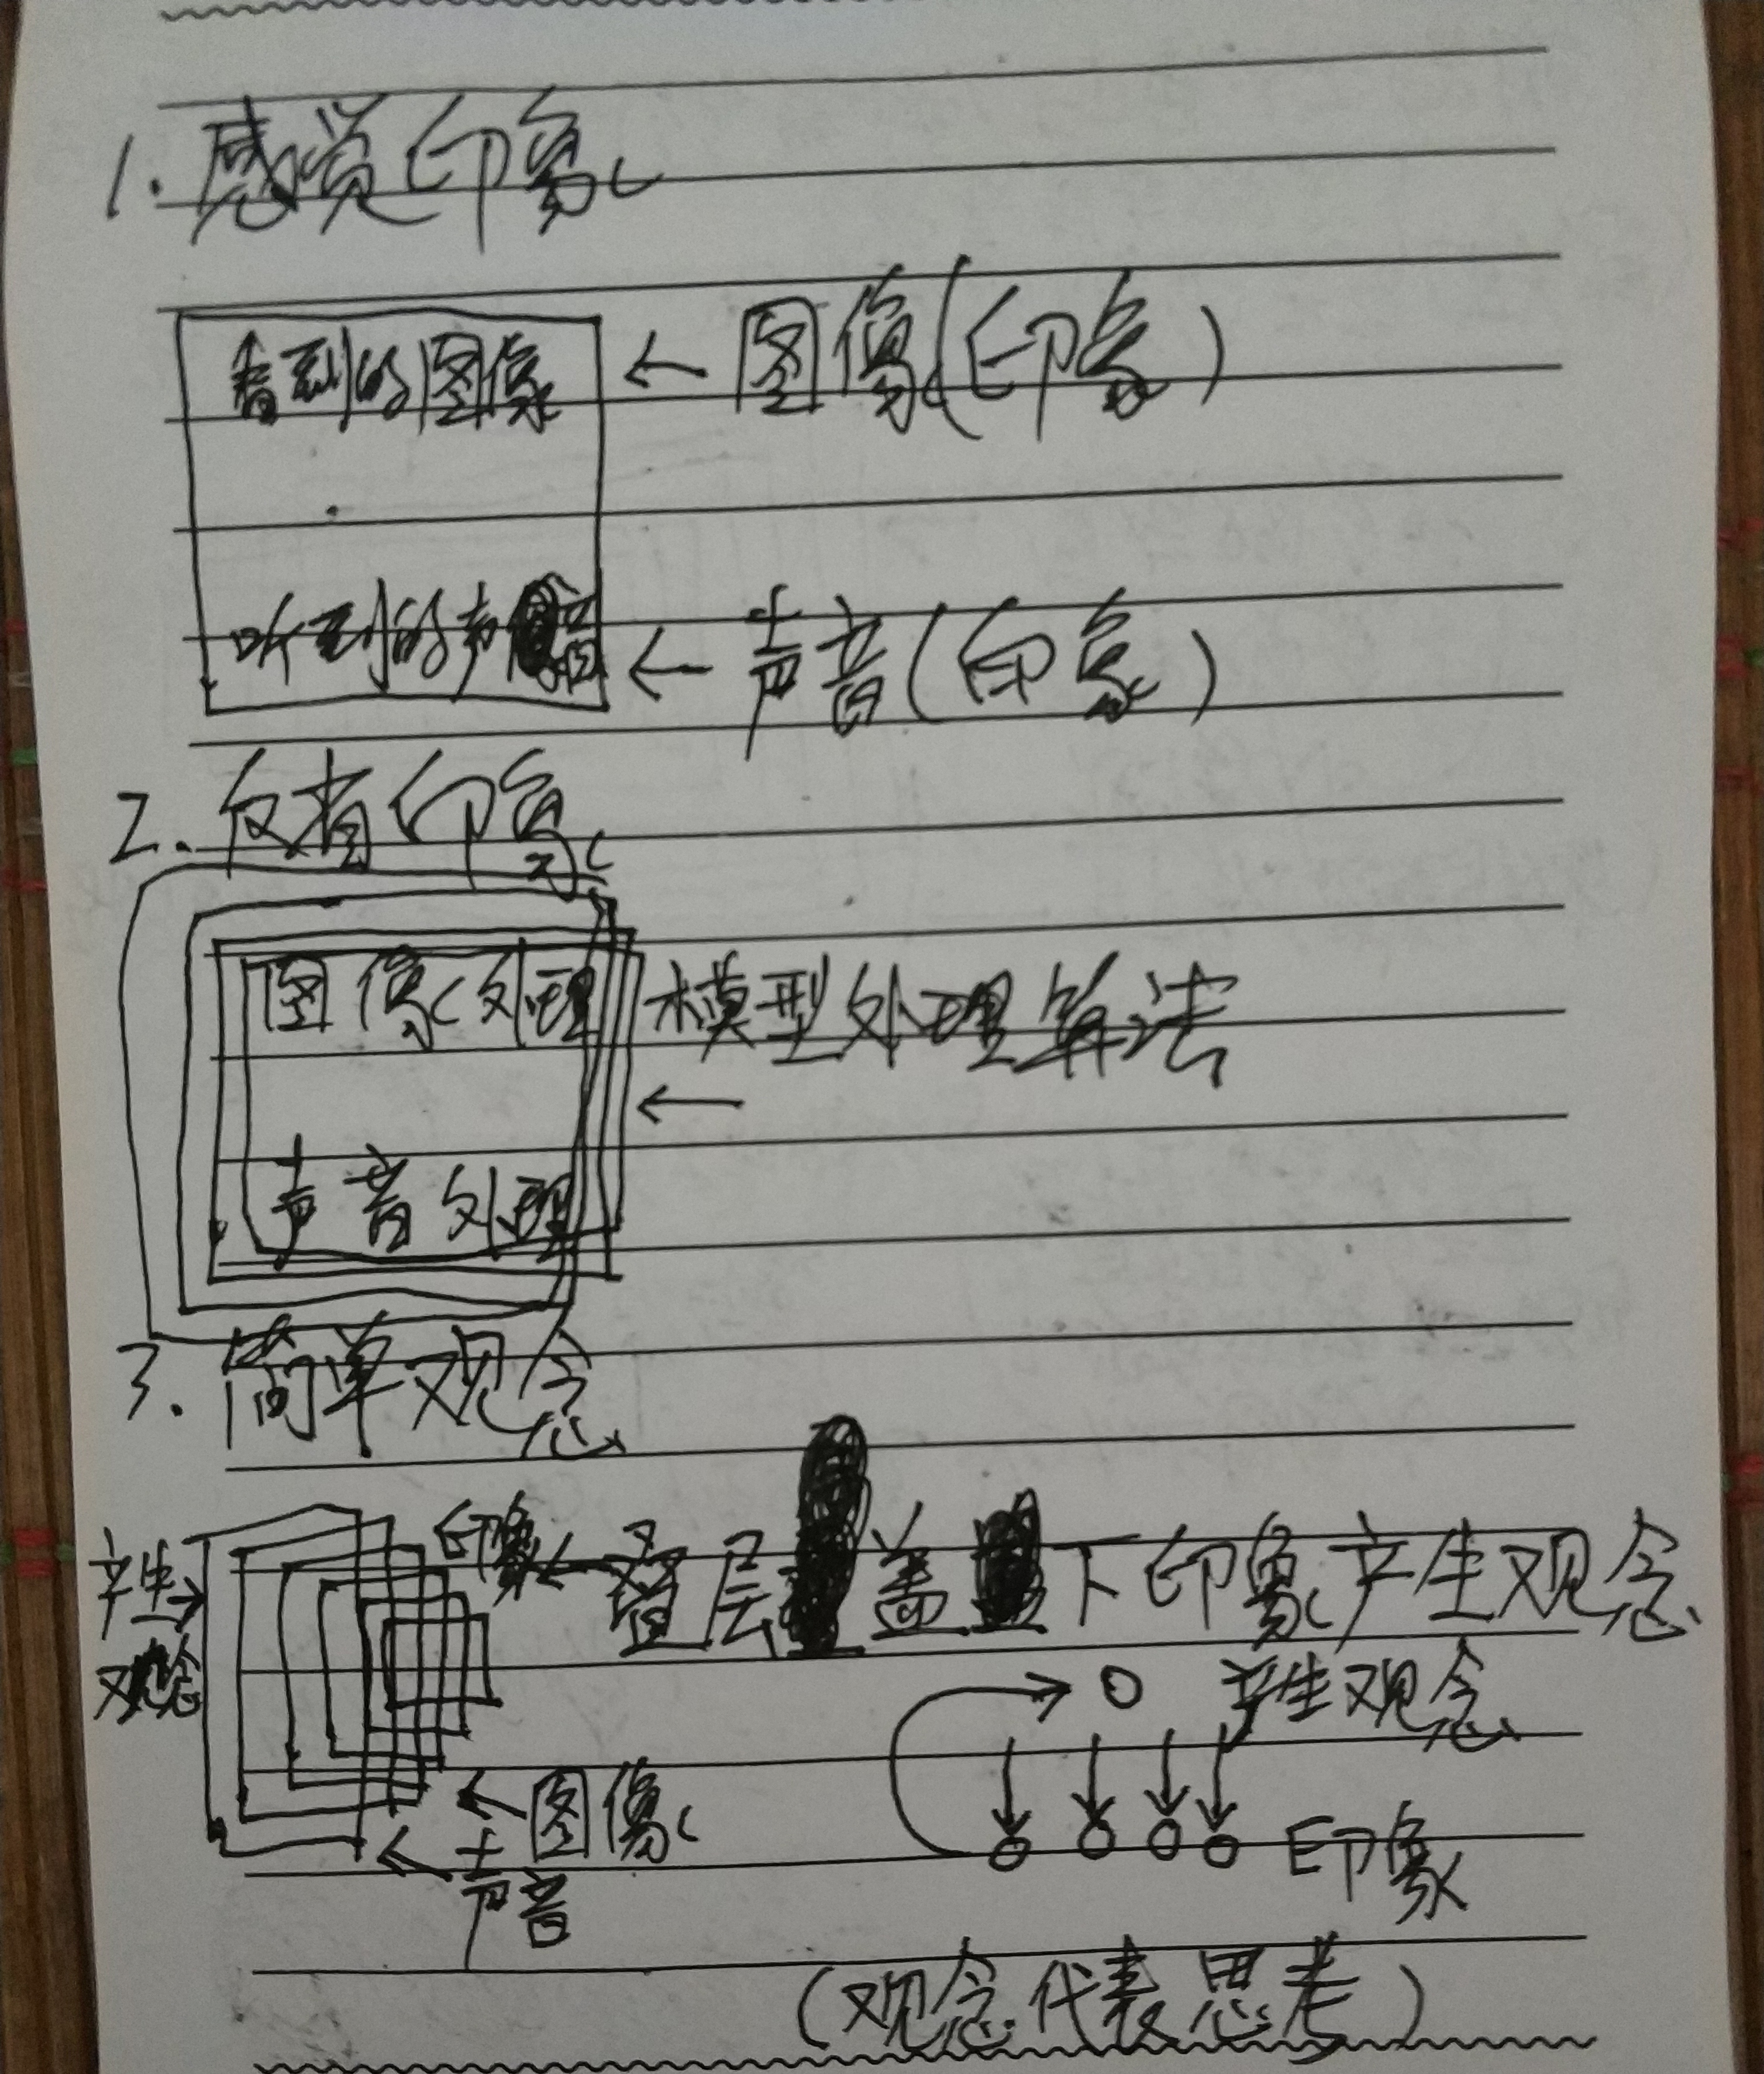 1. 感觉印象
看到的图像 ← 图像(印象)
听到的声音 ← 声音(印象)
2. 反省印象
图像处理 模型处理算法
←
声音处理
3. 简单观念
产生→ 印象 ← 叠层盖下印象产生观念
观念
产生观念
← 图像
← 声音
印象
(观念代表思考)